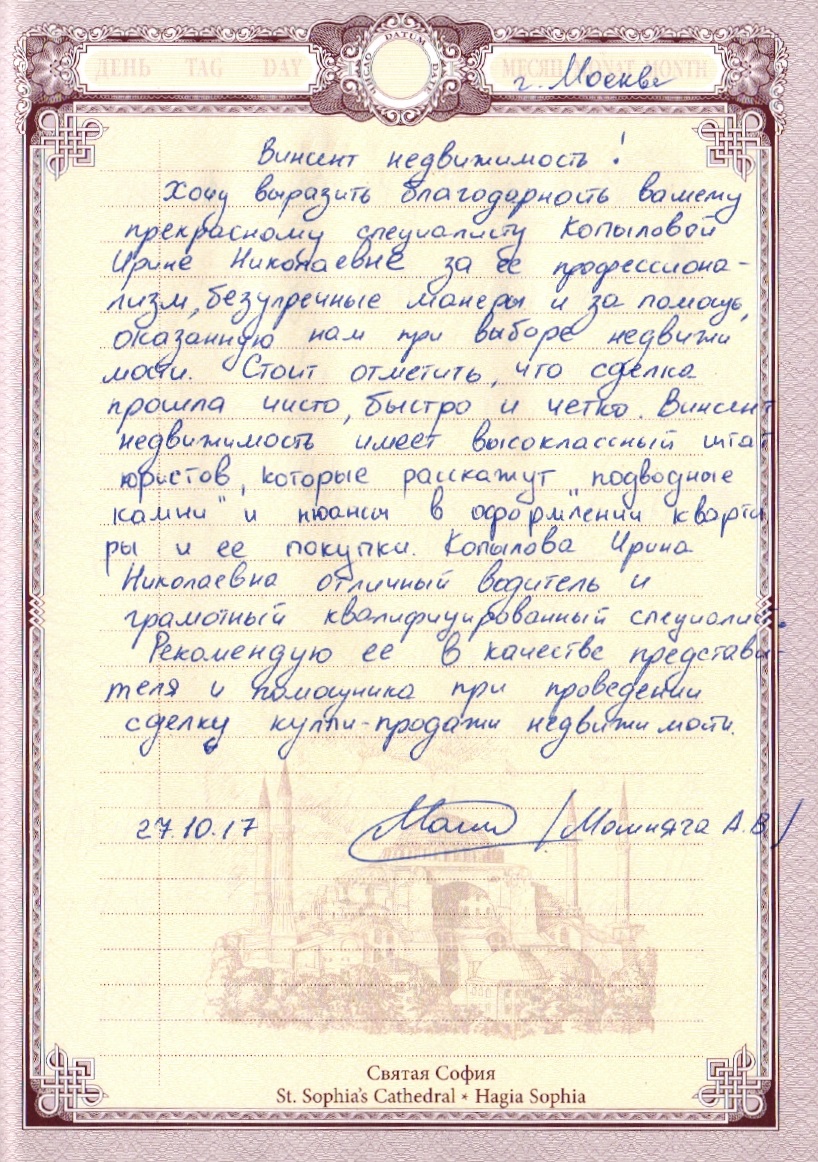 ДЕНЬ TAG DAY DATUM МЕСЯЦ MONAT MONTH
г. Москва
Винсент недвижимость!
Хочу выразить благодарность вашему
прекрасному специалисту Копыловой
Ирине Николаевне за ее профессиона-
лизм, безупречные манеры и за помощь,
оказанную нам при выборе недвижи
мости. Стоит отметить, что сделка
прошла чисто, быстро и четко. Винсент
недвижимость имеет высоклассный штат
юристов, которые расскажут "подводные
камни" и нюансы в оформлении кварти
ры и ее покупки. Копылова Ирина
Николаевна отличный водитель и
грамотный квалифицированный специалист.
Рекомендую ее в качестве представи-
теля и помощника при проведении
сделку купли-продажи недвижимости.
27.10.17 /Момияга А.В./
Святая София
St. Sophia's Cathedral * Hagia Sophia